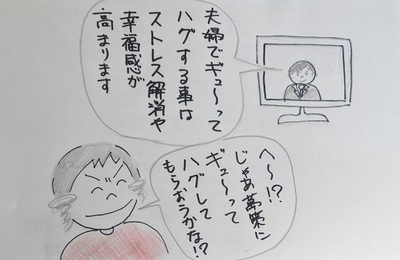 夫婦でギュ〜って
ハグする事は
ストレス解消や
幸福感が
高まります
へ〜!?
じゃあ に
ギュ〜って
ハグして
もらおうかな!?